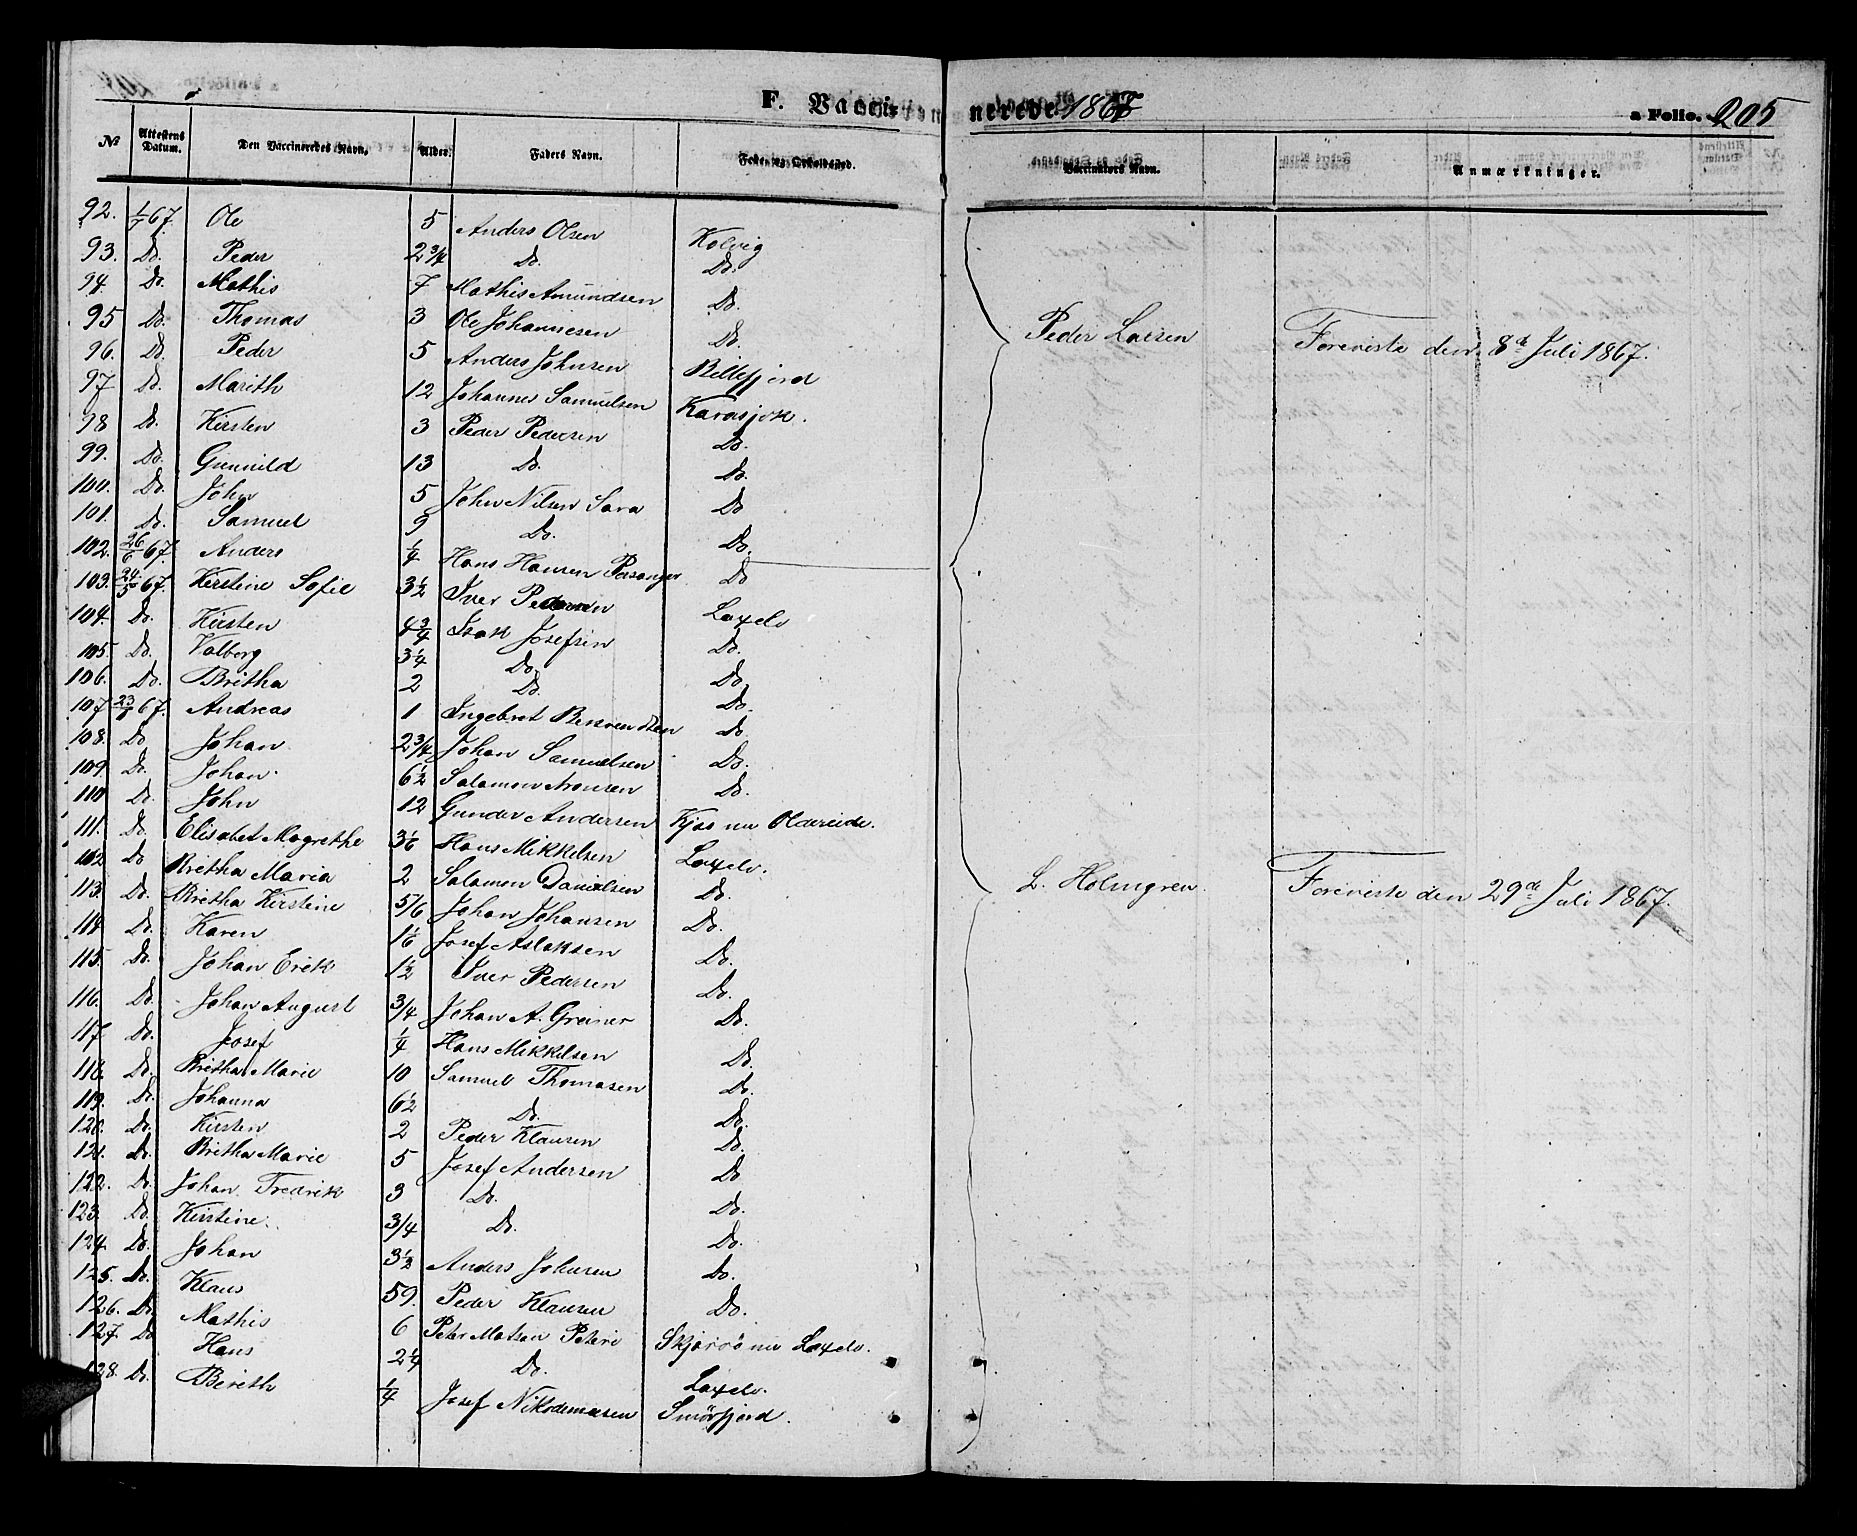 F. Vaccinerede 1867 a Folio. 205
No Attestens Datum. Den Vaccineredes Navn. Alder. Faders Navn. Føde- og Opholdssted. Vaccinators Navn. Anmærkninger.
92. 1/7 67. Ole 5 Anders Olsen Kolvig
93. Do. Peder 2 3/4 Do. Do.
94. Do. Mathis 7 Mathis Amundsen Do.
95 Do. Thomas 3 Ole Johannesen Do.
Peder Larsen Foreviste den 8de Juli 1867.
96. Do. Peder 5 Anders Johnsen Billefjord
97 Do. Marith 12 Johannes Samuelsen Karasjok.
98 Do. Kirsten 3 Peder Pedersen Do.
99. Do. Gunnild 13 Do. Do.
100. Do. John 5 John Nilsen Sara Do
101. Do. Samuel 9 Do. Do.
102. 26/6 67. Anders 1/4 Hans Hansen Porsanger Do
103. 24/5 67. Kirstine Sofie 3 1/2 Iver Pedersen Laxelv
104. Do. Kirsten 4 3/4 Isak Josefsen Do.
105. Do. Valborg 3 1/4 Do. Do.
106. Do. Britha 2 Do. Do.
107 67. Andreas 1 Ingebret Do.
108. Do. Johan 2 3/4 Johan Samuelsen Do.
109. Do. Johan. 6 1/2 Salamon Aronsen Do.
110 Do. John 12 Gunder Andersen Kjæs nu Oldereide.
111. Do. Elisabet Magrethe 3 1/6 Hans Mikkelsen Laxelv.
112 Do Britha Maria 2 Salamon Danielsen Do.
L. Holmgren. Foreviste den 29de Juli 1867.
113. Do. Britha Kirstine 5/6 Johan Johansen Do.
114. Do. Karen 1 1/6 Josef Aslaksen Do.
115. Do. Johan Erik 1 1/2 Iver Pedersen Do.
116. Do. Johan August 3/4 Johan A. Greiner Do.
117. Do. Josef 1/4 Hans Mikkelsen Do.
118. Do. Britha Marie 10 Samuel Thomasen Do.
119. Do. Johanna 6 1/2 Do. Do.
120. Do. Kirsten 2 Peder Klausen Do.
121. Do. Britha Marie 5 Josef Andersen Do
122. Do. Johan Fredrik 3 Do. Do.
123. Do. Kirstine. 3/4 Do. Do.
124. Do. Johan 3 1/2 Anders Johnsen Do.
125. Do. Klaus 59. Peder Klausen Do.
126. Do Mathis 6 Peter Matsen Skjørø nu Laxelv.
127. Do Hans 2 1/4 Do. Laxelv.
128. Do. Bereth 1/4 Josef Nikodemusen Smørfjord.